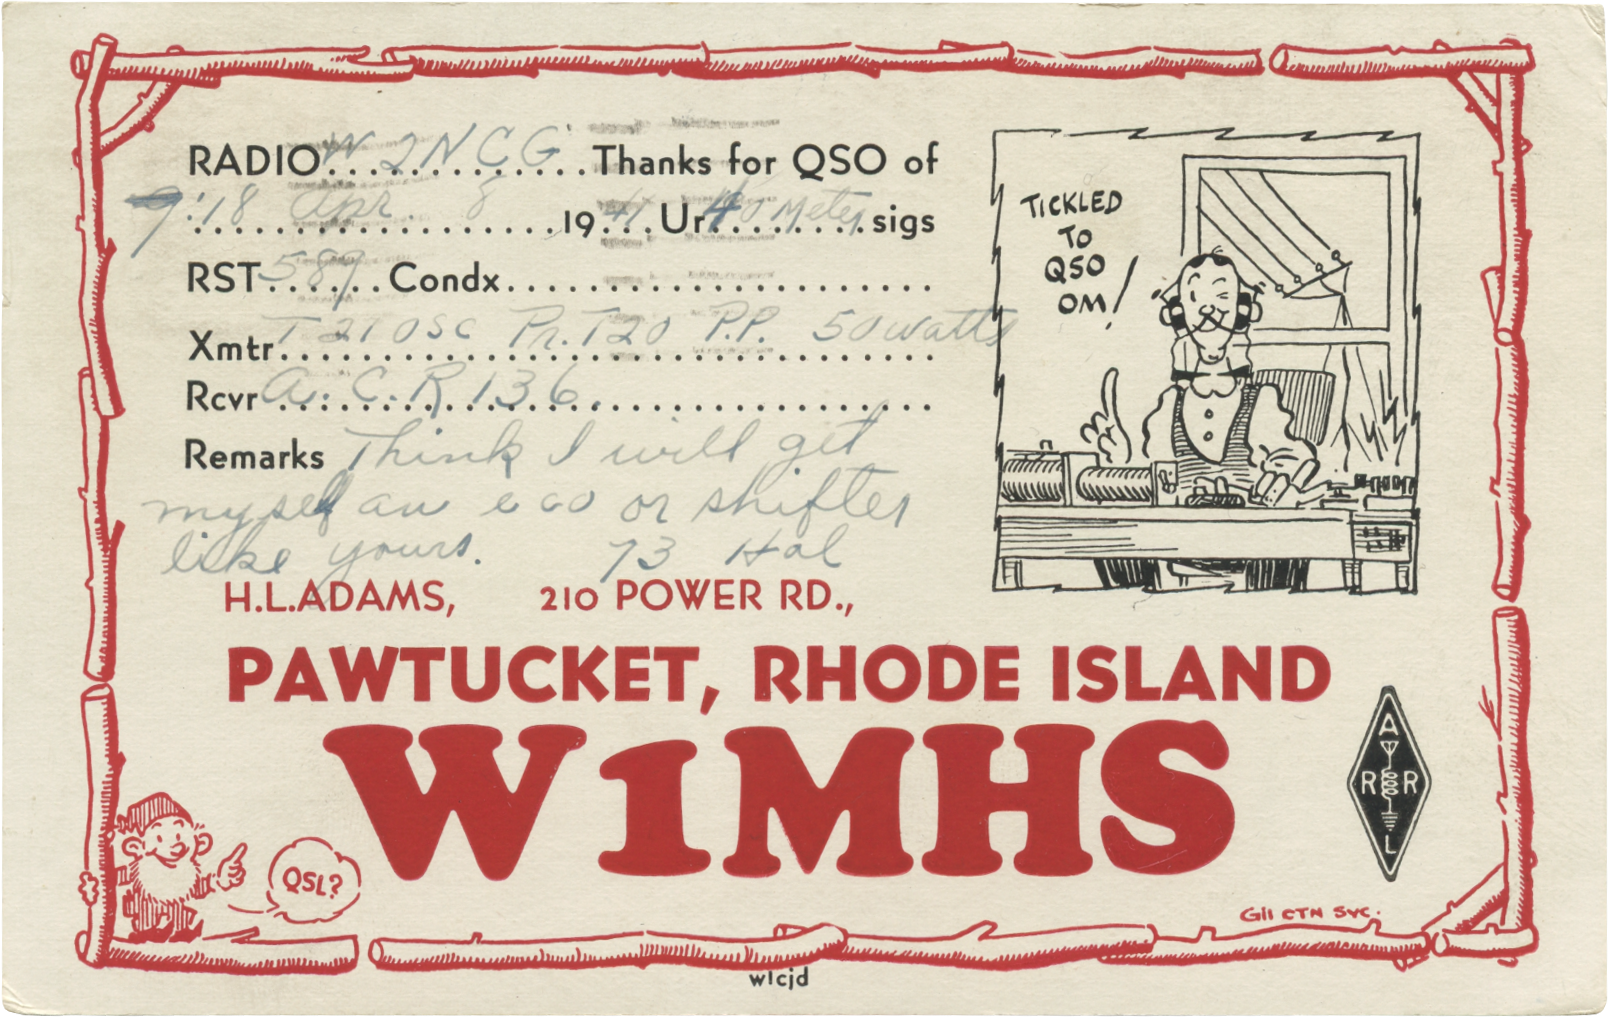 RADIO W2NCG Thanks for QSO of
9:18 Apr 8 1941 Ur 40 Meter sigs
RST 589 Condx
Xmtr T21 OSC Pr. T20 P.P. 50 watts
Rcvr A.C.R 136.
Remarks Think I will get
myself an eco or shifter
like yours. 73 Hal
H.L.ADAMS, 210 POWER RD.,
PAWTUCKET, RHODE ISLAND
W1MHS
TICKLED
TO
QSO
OM!
A
R R
L
QSL?
CTN SVC.
w1cjd